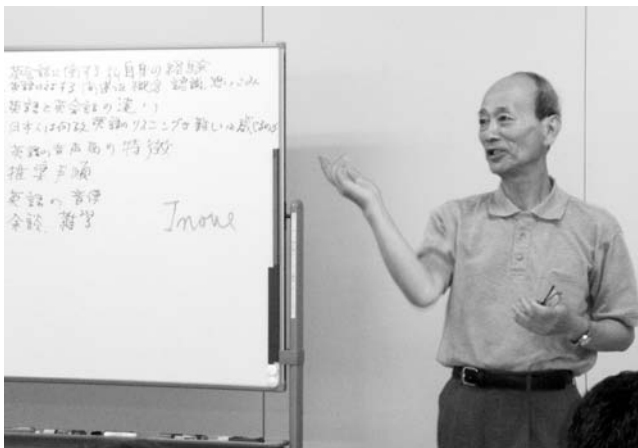 英会話に関する私自身の経験
英語に対する間違った概念 認識 思いこみ
英語と英会話の違い
日本人は何故英語のリスニングが難しいと感じるのか
英語の音声面の特徴
推奨
英語の音便
余談、雑学
Inoue